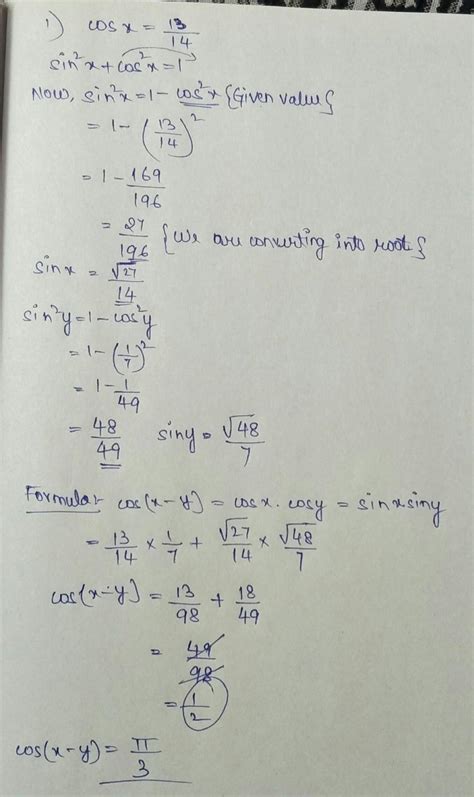 1) cos x = 13/14
sin²x + cos²x = 1
Now, sin²x = 1 - cos²x {Given value}
= 1 - (13/14)²
= 1 - 169/196
= 27/196 {We are converting into root}
sinx = √27/14
sin²y = 1 - cos²y
= 1 - (1/7)²
= 1 - 1/49
= 48/49 siny = √48/7
Formula:- cos(x-y) = cosx. cosy = sinxsiny
= 13/14 × 1/7 + √27/14 × √48/7
cos(x-y) = 13/98 + 18/49
= 49/98
= 1/2
cos(x-y) = π/3